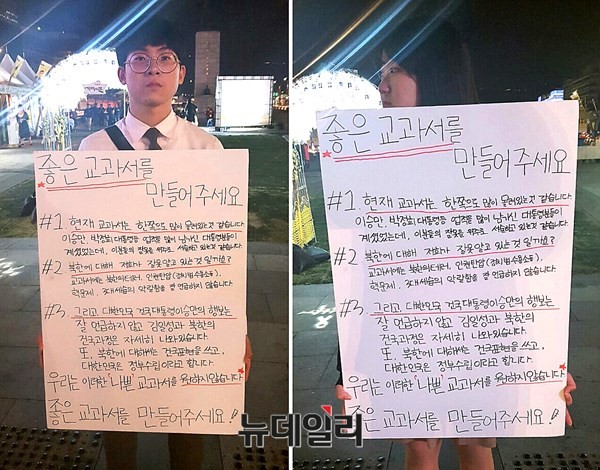 좋은 교과서를
만들어주세요
#1. 현재 교과서는 한쪽으로 많이 쏠려있는것 같습니다.
이승만, 박정희대통령등 업적을 많이 남기신 대통령분들이
계셨었는데, 이분들의 잘못을 위주로 서술하고 있는것 같습니다.
#2 북한에 대해 저희가 잘못알고 있는 것 일까요?
교과서에는 북한의테러, 인권탄압(정치범수용소),
핵문제, 3대세습의 악랄함을 잘 언급하지 않습니다.
#3. 그리고, 대한민국 건국대통령이승만의 행보는
잘 언급하지 않고 김일성과 북한의
건국과정은 자세히 나와있습니다.
또, 북한에 대해서는 건국표현을 쓰고,
대한민국은 정부수립이라고 합니다.
우리는 이러한 '나쁜' 교과서를 원하지않습니다
좋은 교과서를 만들어주세요!!
좋은 교과서를
만들어주세요
#1. 현재 교과서는 한쪽으로 많이 쏠려있는것 같습니다.
이승만, 박정희대통령등 업적을 많이 남기신 대통령분들이
계셨었는데, 이분들의 잘못을 위주로 서술하고 있는것 같습니다.
#2 북한에 대해 저희가 잘못알고 있는 것 일까요?
교과서에는 북한의테러, 인권탄압(정치범수용소),
핵문제, 3대세습의 악랄함을 잘 언급하지 않습니다.
#3. 그리고, 대한민국 건국대통령이승만의 행보는
잘 언급하지 않고 김일성과 북한의
건국과정은 자세히 나와있습니다.
또, 북한에 대해서는 건국표현을 쓰고,
대한민국은 정부수립이라고 합니다.
우리는 이러한 '나쁜' 교과서를 원하지않습니다
좋은 교과서를 만들어주세요!!
뉴데일리